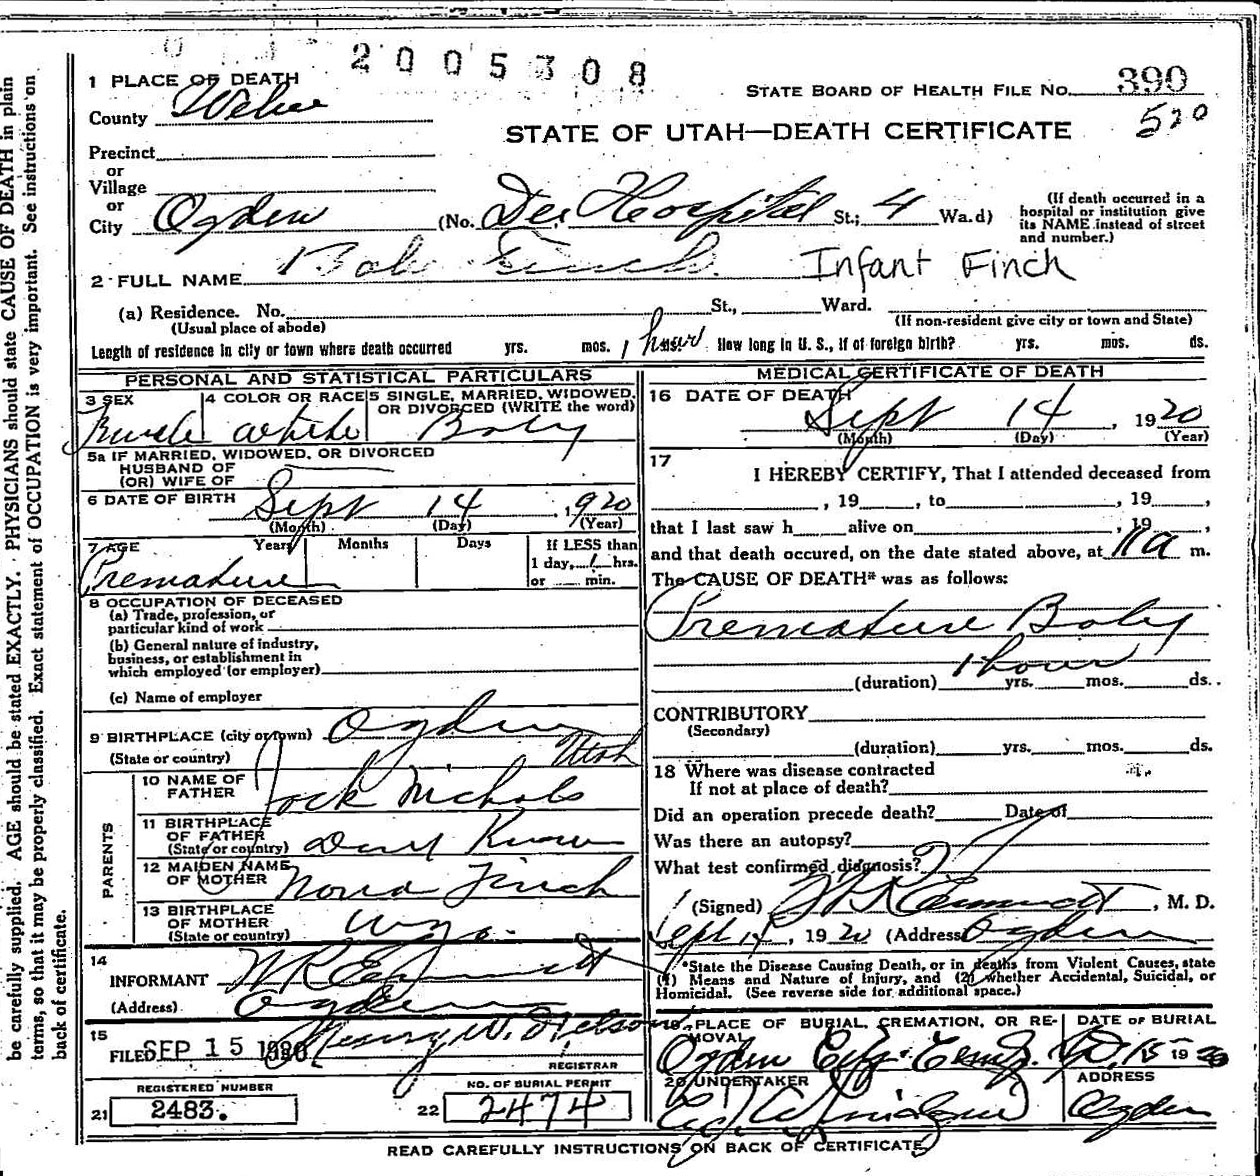 2005308
1 PLACE OF DEATH
STATE BOARD OF HEALTH FILE No. 390
County Weber
520
STATE OF UTAH—DEATH CERTIFICATE
Precinct
or
Village
or
City Ogden (No. Dee Hospital St.; 4 Wa.d)
(If death occurred in a hospital or institution give its NAME instead of street and number.)
2 FULL NAME Finch Infant Finch
(a) Residence. No. St., Ward.
(Usual place of abode) (If non-resident give city or town and State)
Length of residence in city or town where death occurred yrs. mos. 1 hour How long in U. S., if of foreign birth? yrs. mos. ds.
PERSONAL AND STATISTICAL PARTICULARS
3 SEX 4 COLOR OR RACE 5 SINGLE, MARRIED, WIDOWED,
OR DIVORCED (WRITE the word)
white Baby
5a IF MARRIED, WIDOWED, OR DIVORCED
HUSBAND OF
(OR) WIFE OF
6 DATE OF BIRTH Sept 14, 1920
(Month) (Day) (Year)
7 AGE Years Months Days If LESS than
1 day, 1 hrs.
or min.
Premature
8 OCCUPATION OF DECEASED
(a) Trade, profession, or
particular kind of work
(b) General nature of industry,
business, or establishment in
which employed (or employer)
(c) Name of employer
9 BIRTHPLACE (city or town) Ogden
(State or country) Utah
PARENTS
10 NAME OF
FATHER Jack Nichols
11 BIRTHPLACE
OF FATHER
(State or country) Dont Know
12 MAIDEN NAME
OF MOTHER Nova Finch
13 BIRTHPLACE
OF MOTHER
(State or country) Wyo.
14
INFORMANT
(Address) Ogden
15
FILED SEP 15 1920 Henry W. Nelson
REGISTRAR
REGISTERED NUMBER
21 2483.
NO. OF BURIAL PERMIT
22 2474
MEDICAL CERTIFICATE OF DEATH
16 DATE OF DEATH
Sept 14, 1920
(Month) (Day) (Year)
17
I HEREBY CERTIFY, That I attended deceased from
, 19 , to , 19 ,
that I last saw h alive on , 19 ,
and that death occured, on the date stated above, at 11 a m.
The CAUSE OF DEATH* was as follows:
Premature Baby
1 hour
(duration) yrs. mos. ds.
CONTRIBUTORY
(Secondary)
(duration) yrs. mos. ds.
18 Where was disease contracted
If not at place of death?
Did an operation precede death? Date of
Was there an autopsy?
What test confirmed diagnosis?
(Signed) , M. D.
Sept 14, 1920 (Address Ogden
*State the Disease Causing Death, or in deaths from Violent Causes, state
(1) Means and Nature of Injury, and (2) whether Accidental, Suicidal, or
Homicidal. (See reverse side for additional space.)
19 PLACE OF BURIAL, CREMATION, OR RE-
MOVAL
DATE OF BURIAL
Ogden City 15 1920
20 UNDERTAKER
ADDRESS
Ogden
READ CAREFULLY INSTRUCTIONS ON BACK OF CERTIFICATE
be carefully supplied. AGE should be stated EXACTLY. PHYSICIANS should state CAUSE OF DEATH in plain
terms, so that it may be properly classified. Exact statement of OCCUPATION is very important. See instructions on
back of certificate.